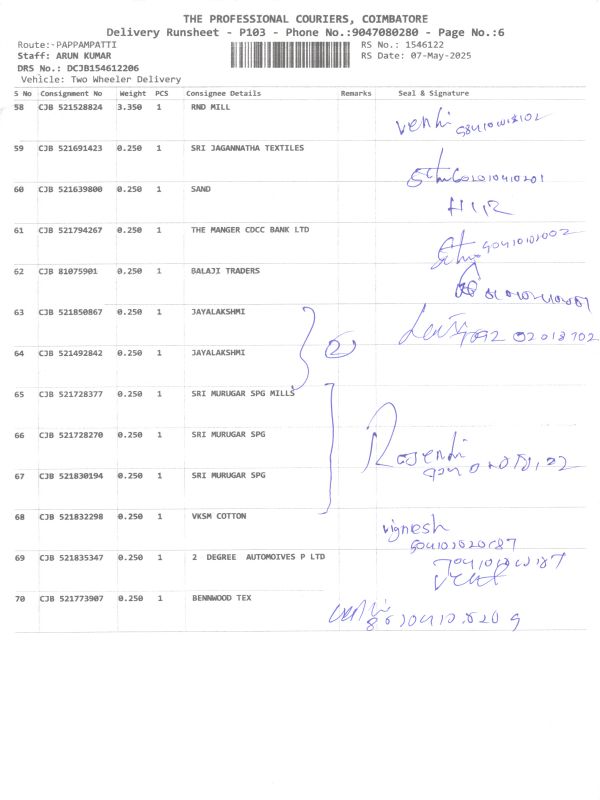 THE PROFESSIONAL COURIERS, COIMBATORE
Delivery Runsheet - P103 - Phone No.:9047080280 - Page No.:6
Route:-PAPPAMPATTI RS No.: 1546122
Staff: ARUN KUMAR RS Date: 07-May-2025
DRS No.: DCJB154612206
Vehicle: Two Wheeler Delivery
S No Consignment No Weight PCS Consignee Details Remarks Seal & Signature
58 CJB 521528824 3.350 1 RND MILL
59 CJB 521691423 0.250 1 SRI JAGANNATHA TEXTILES
60 CJB 521639800 0.250 1 SAND
61 CJB 521794267 0.250 1 THE MANGER CDCC BANK LTD
62 CJB 81075901 0.250 1 BALAJI TRADERS
63 CJB 521850867 0.250 1 JAYALAKSHMI
2
64 CJB 521492842 0.250 1 JAYALAKSHMI
65 CJB 521728377 0.250 1 SRI MURUGAR SPG MILLS
66 CJB 521728270 0.250 1 SRI MURUGAR SPG
67 CJB 521830194 0.250 1 SRI MURUGAR SPG
68 CJB 521832298 0.250 1 VKSM COTTON
vignesh
69 CJB 521835347 0.250 1 2 DEGREE AUTOMOIVES P LTD
70 CJB 521773907 0.250 1 BENNWOOD TEX